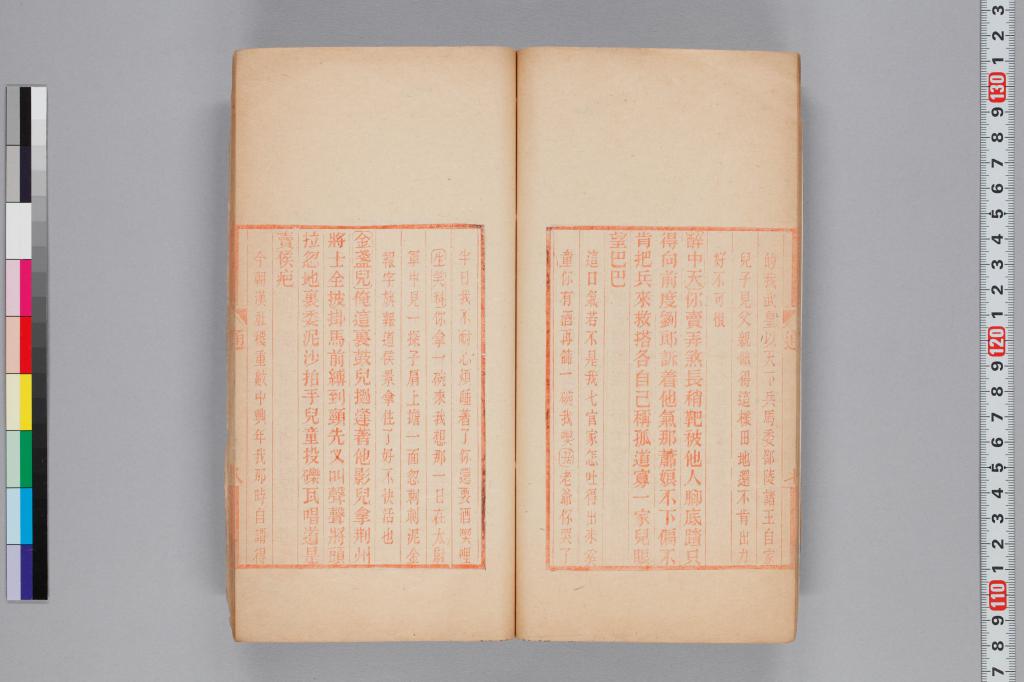 的我武皇以天下兵馬委鄙陵諸王自家
兒子見父親餓得這樣田地還不肯出力
好不可恨
醉中天你賣弄煞長稍靶被他人腳底蹅只
得向前度劉郎訴着他氣那蕭娘不下傷不
肯把兵來救搭各自己稱孤道寡一家兒眼
望巴巴
這口氣若不是我七官家怎吐得出來奚
童你有酒再篩一碗我喫老爺你哭了
半日我不耐心煩睡著了你還要酒喫哩
生笑科你拿一碗來我想那一日在太廟
軍中見一探子肩上擔一面忽剌剌泥金
報字旗報道侯景拿住了好不快活也
金盞兒俺這裏鼓兒撾逢著他影兒拿荆州
將士全披掛馬前縛到頸先叉叫聲聲將頭
拉忽地裏委泥沙拍手兒童投礫瓦唱道是
賣侯疤
今朝漢社稷重數中興年我那時自謂得